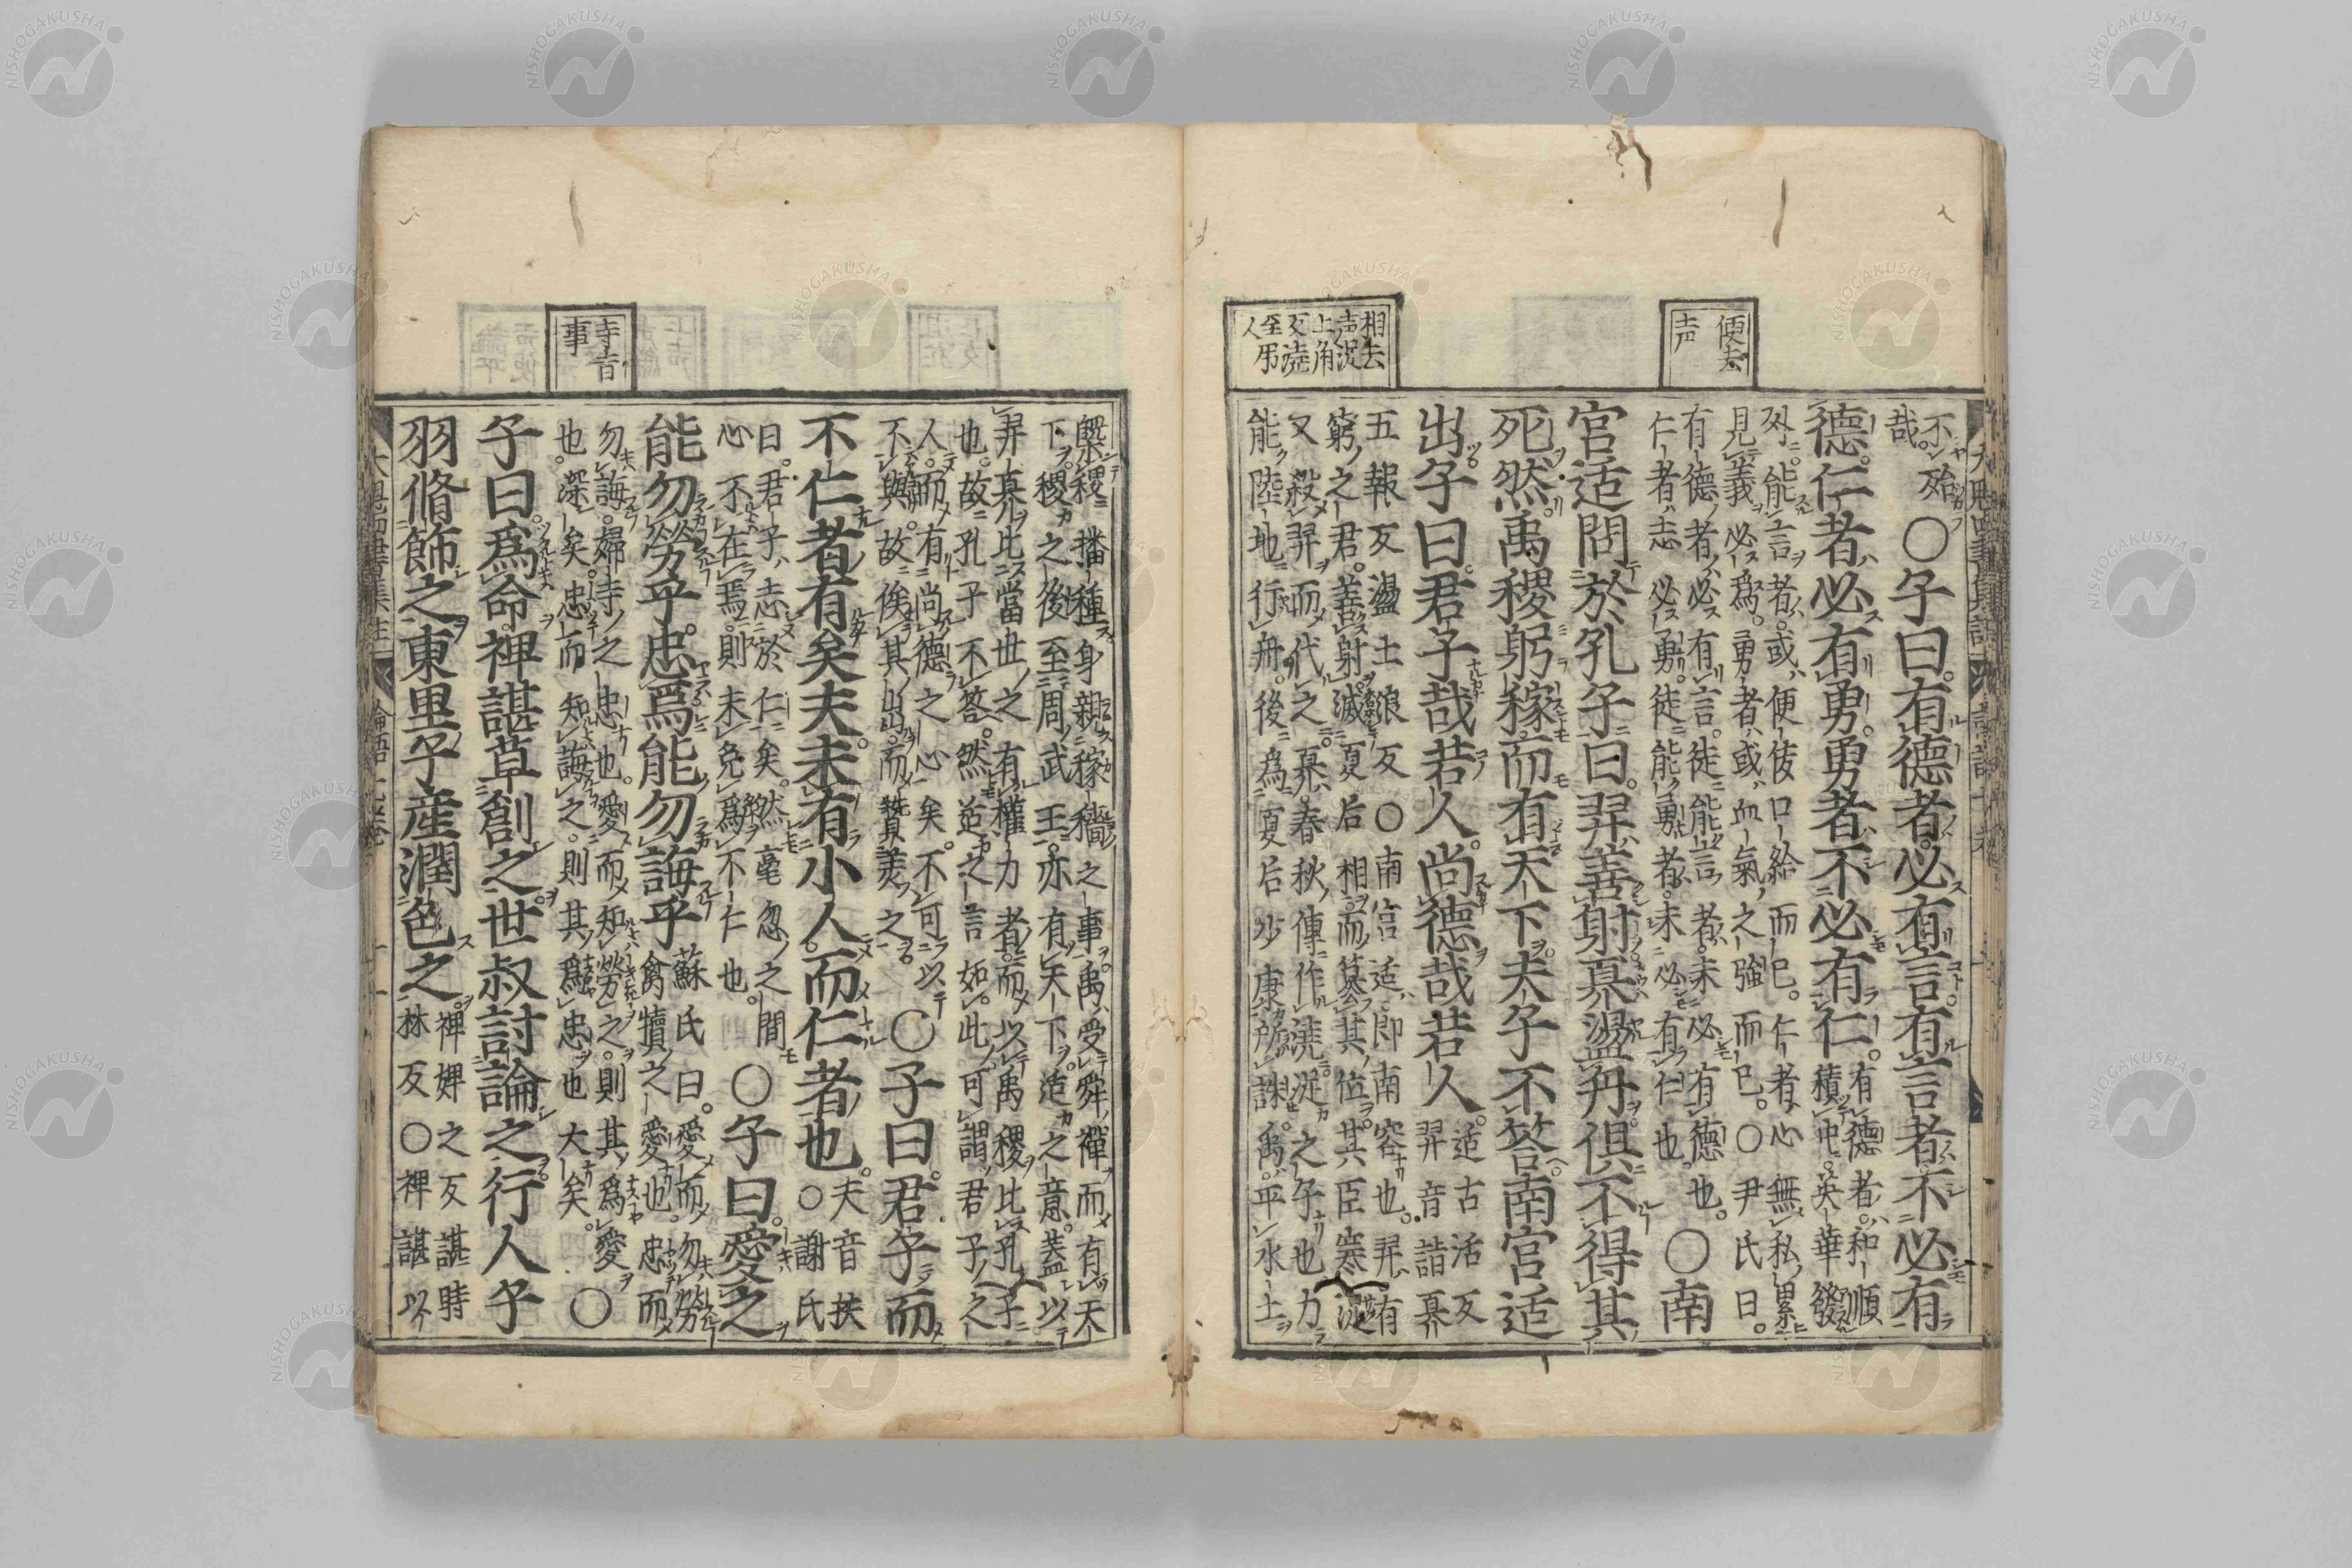 便去
声
相去
声浞
上角
反澆
至吊
人
不殆
哉。
○子曰。有德者必有言有言者不必有
德仁者必有勇勇者不必有仁。
有德者。和順
積中。英華發
外。能言者。或便佞口給而已。仁者心無私累
見義必爲。勇者或血氣之強而已。○尹氏曰。
有德者必有言。徒能言者。未必有德也。
仁者志必勇。徒能勇者。未必有仁也。
○南
宮适問於孔子曰。羿善射奡盪舟俱不得其
死然。禹稷躬稼而有天下。夫子不答南宮适
出。子曰。君子哉若人。尚德哉若人。
适古活反
羿音詣奡
五報反盪土浪反○南宮适即南容也。羿有
窮之君。善射。滅夏后相而簒其位。其臣寒浞
又殺羿而代之。奡春秋傳作澆浞之子也力
能陸地行舟。後爲夏后少康所誅。禹平水土
寺音
事
曁稷播種身親稼穡之事。禹受舜禪而有天
下。稷之後至周武王亦有天下。适之意。蓋以
羿奡比當世之有權力者。而以禹稷比孔子
也。故孔子不答。然适之言如此。可謂君子之
人。而有尚德之心矣。不可以
不與。故俟其出。而贊美之。
○子曰。君子而
不仁者有矣夫。未有小人而仁者也。
夫音扶
○謝氏
曰。君子志於仁矣。然毫忽之間
心不在焉。則未免爲不仁也。
○子曰。愛之
能勿勞乎。忠焉能勿誨乎
蘇氏曰。愛而勿勞
禽犢之愛也。忠而
勿誨。婦寺之忠也。愛而知勞之。則其爲愛
也深矣。忠而知誨之。則其爲忠也大矣。
○
子曰。爲命。裨諶草創之。世叔討論之。行人子
羽脩飾之。東里子産潤色之。
裨婢之反諶時
林反○裨諶以